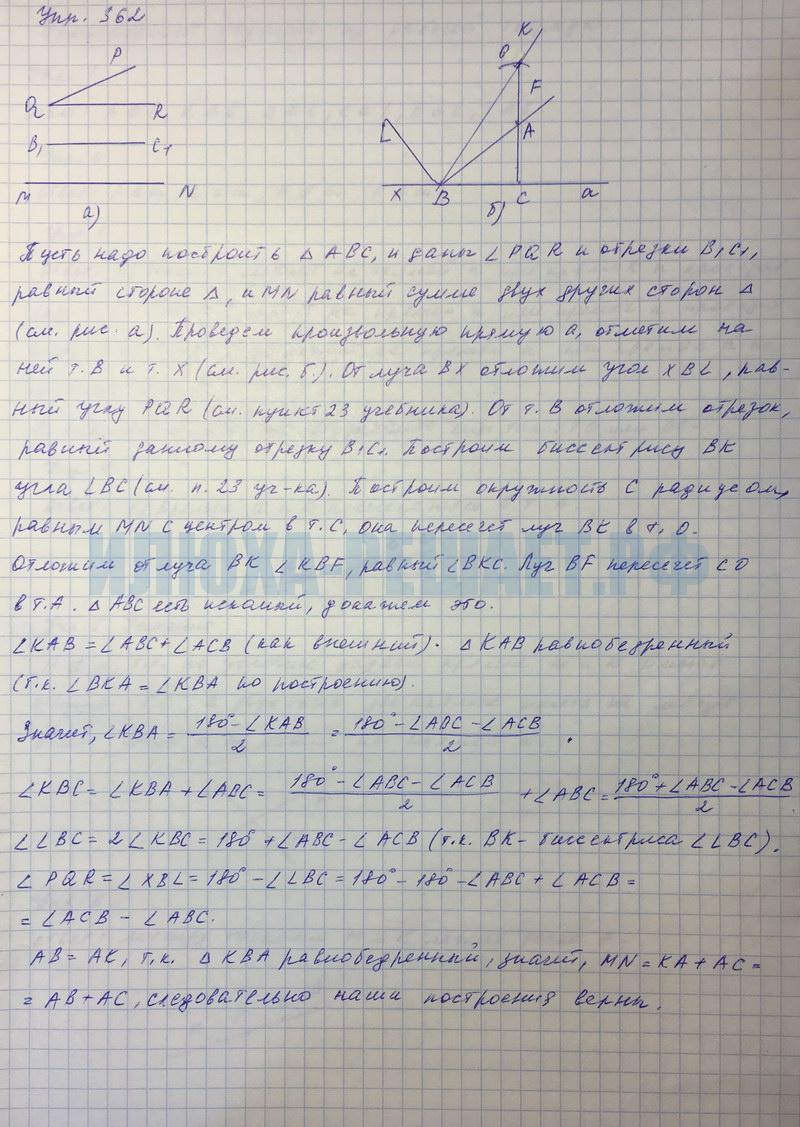 Упр. 362
P
Q
R
B₁
C₁
M
N
а)
K
O
F
L
A
X
B
C
a
б)
Пусть надо построить △ ABC, и даны ∠ PQR и отрезки B₁C₁,
равный стороне △, и MN равный сумме двух других сторон △
(см. рис. а). Проведем произвольную прямую а, отметим на
ней т. B и т. X (см. рис. б.). От луча BX отложим угол XBL, рав-
ный углу PQR (см. пункт 23 учебника). От т. B отложим отрезок,
равный данному отрезку B₁C₁. Построим биссектрису BK
угла LBC (см. п. 23 уч-ка). Построим окружность с радиусом,
равным MN с центром в т. C, она пересечет луч BK в т. O.
Отложим от луча BK ∠ KBF, равный ∠BKC. Луч BF пересечет CO
в т. A. △ ABC есть искомый, докажем это.
ИЛЮХА-РЕШАЕТ.РФ
∠KAB = ∠ABC + ∠ACB (как внешний). △ KAB равнобедренный
(т.к. ∠BKA = ∠KBA по построению).
Значит, ∠KBA = (180° - ∠KAB)/2 = (180° - ∠ABC - ∠ACB)/2.
∠KBC = ∠KBA + ∠ABC = (180° - ∠ABC - ∠ACB)/2 + ∠ABC = (180° + ∠ABC - ∠ACB)/2
∠LBC = 2∠KBC = 180° + ∠ABC - ∠ACB (т.к. BK - биссектриса ∠LBC).
∠ PQR = ∠ XBL = 180° - ∠LBC = 180° - 180° - ∠ABC + ∠ACB =
= ∠ACB - ∠ABC.
AB = AK, т.к. △ KBA равнобедренный, значит, MN = KA + AC =
= AB + AC, следовательно наши построения верны.